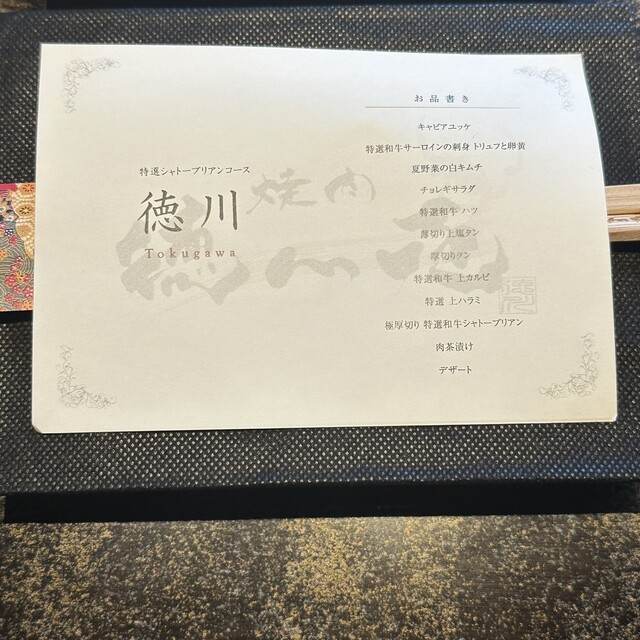 特選シャトーブリアンコース
徳川
Tokugawa
焼肉
お品書き
キャビアユッケ
特選和牛サーロインの刺身 トリュフと卵黄
夏野菜の白キムチ
チョレギサラダ
特選和牛 ハツ
薄切り上塩タン
厚切りタン
特選和牛 上カルビ
特選 上ハラミ
極厚切り 特選和牛シャトーブリアン
肉茶漬け
デザート